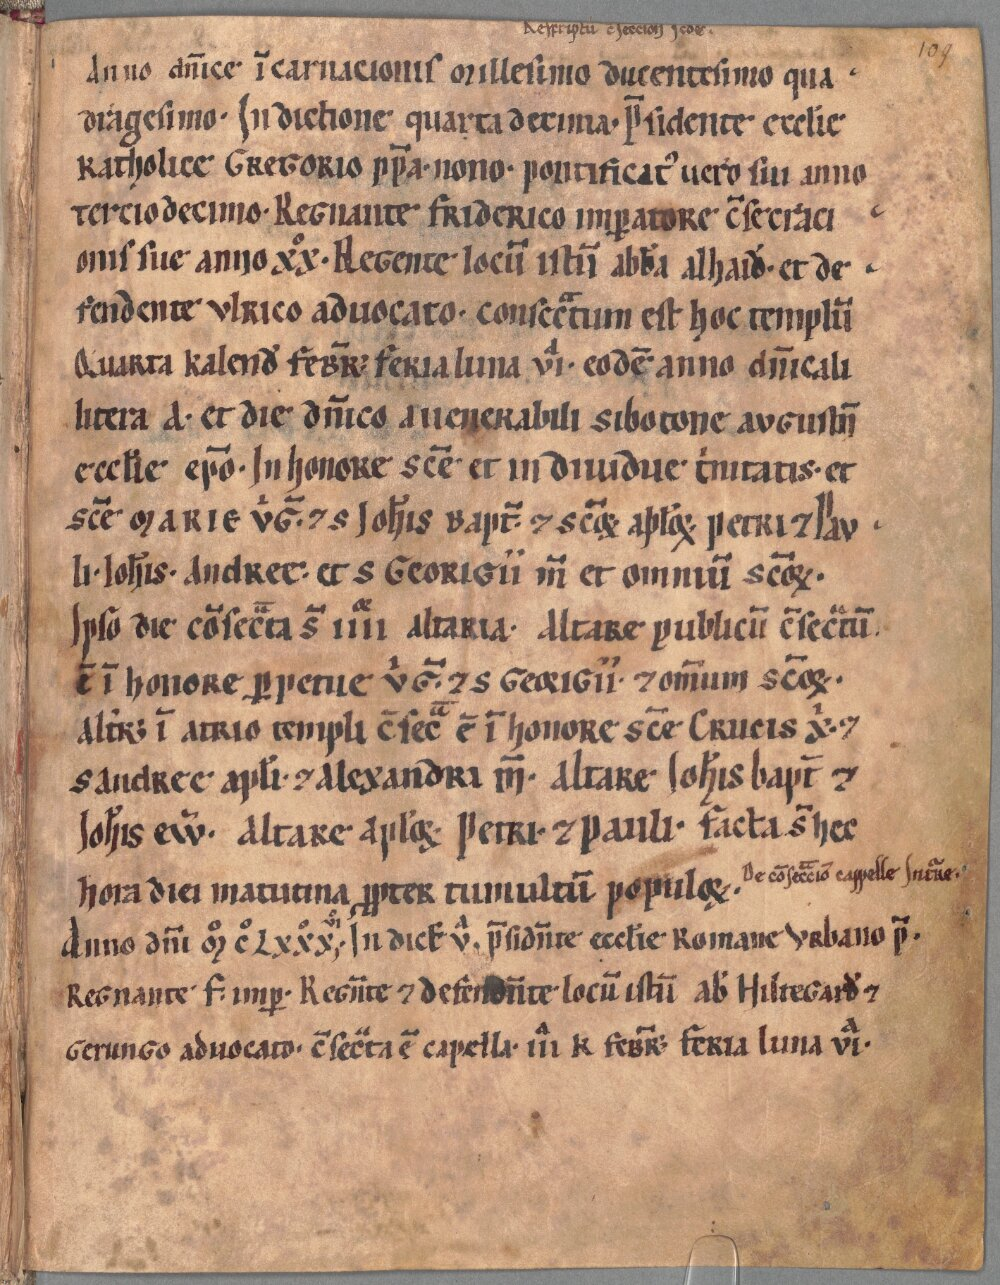 109
Anno dn̄ice īcarnacionis millesimo ducentesimo qua
dragesimo. Indictione quarta decima. p̄sidente ecclie
katholice Gregorio pp̄a. nono. pontificatꝰ uero sui anno
terciodecimo. Regnante friderico imꝑatore c̄secraci
onis sue anno xx̊. Regente locū istū abb̄a alhaid̄. et de
fendente vlrico aduocato. consecᵃtum est hoc templū
Quarta kalend̄ febr̄ꝭ feria luna vi. eodē anno dn̄icali
litera A. et die dn̄ico a uenerabili sibotone avgustn̄
ecclie ep̄o. In honore sc̄e et indiuidue tⁱnitatis. et
sc̄e marie v̇G̅. ⁊ s Joh̄is bapt̄ ⁊ sc̄oꝝ aplōꝝ petri ⁊ Pav
li. Ioh̄is. Andree. et s Georigii m̄ et omniū sc̄oꝝ.
Ipso die cōsecᵃta s̄ iiii altaria. Altare publicū c̄secᵃtū.
ē ī honore ꝑpetue v̇G̅. ⁊ s Georigii. ⁊ om̄ium sc̄oꝝ.
Altr̄ꝭ ī atrio templi c̄secᵃ ē ī honore sc̄e Crucis ẋ. ⁊
s andree apl̄i. ⁊ Alexandri m̄. Altare Joh̄is bapt̄ ⁊
Joh̄is ew̄. Altare aplōꝝ. Petri. ⁊ pauli. facta s̄ hec
hora diei matutina ꝓpter tumultū populoꝝ.
De cōsecᵃcio cappelle
Anno dn̄i M̊ C̊ Lxxx̊vi, Indict̄ v̇. p̄sidn̄te ecclie Romane Vrbano p̄.
Regnante f. imꝑ. Regn̄te ⁊ defendn̄te locū istū ab̄ Hiltegard̄ ⁊
Gerungo aduocato. c̄secᵃta ē capella. iii k febr̄ꝭ feria luna vi.